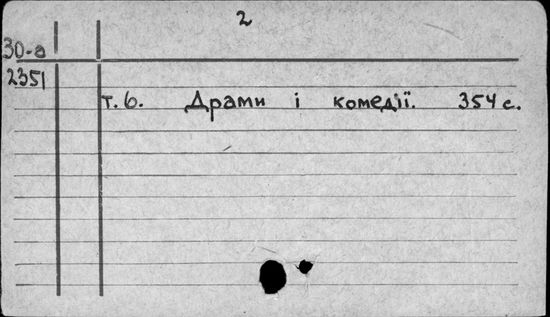 2
30-а
2351
т. 6. Драми і комедії. 354 с.